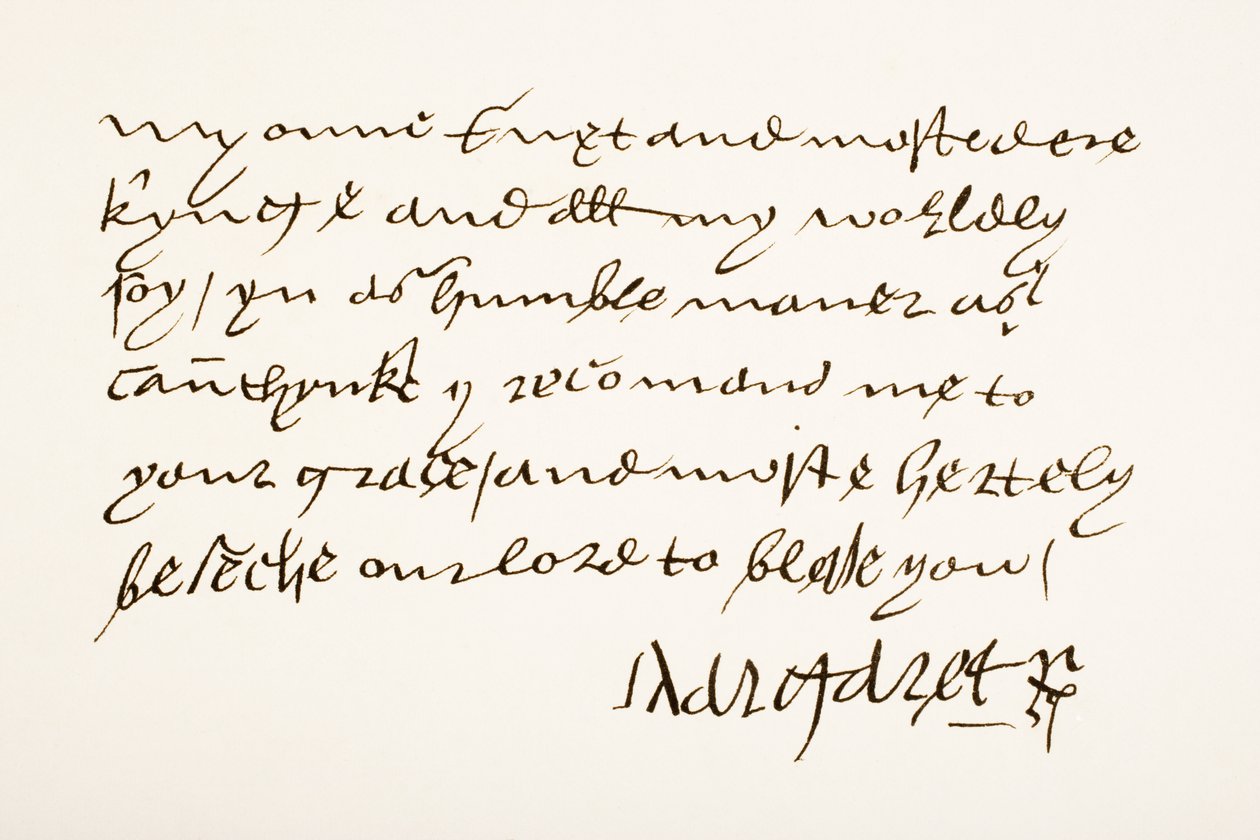 my oune suet and moste deere
kynge and all my worldely
joy / yn as humble maner as y
can thynke y recomand me to
your grace / and moste hertely
beseche our lord to blesse you /
Margaret R